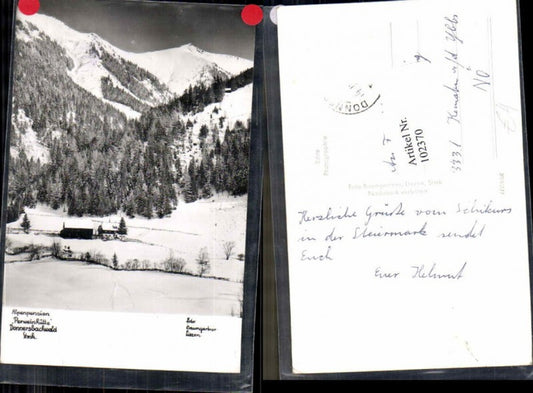 Alpenpension
"Perweinhütte"
Donnersbachwald
Stmk.
Foto
Baumgartner
Liezen
Echte
Photographie
Foto Baumgartner, Liezen, Stmk
Nachdruck verboten
DONN
Artikel Nr.
102370
An F
3331 Kematen a/d Ybbs
NÖ
Herzliche Grüße vom Schikurs
in der Steiermark sendet
Euch
Euer Helmut